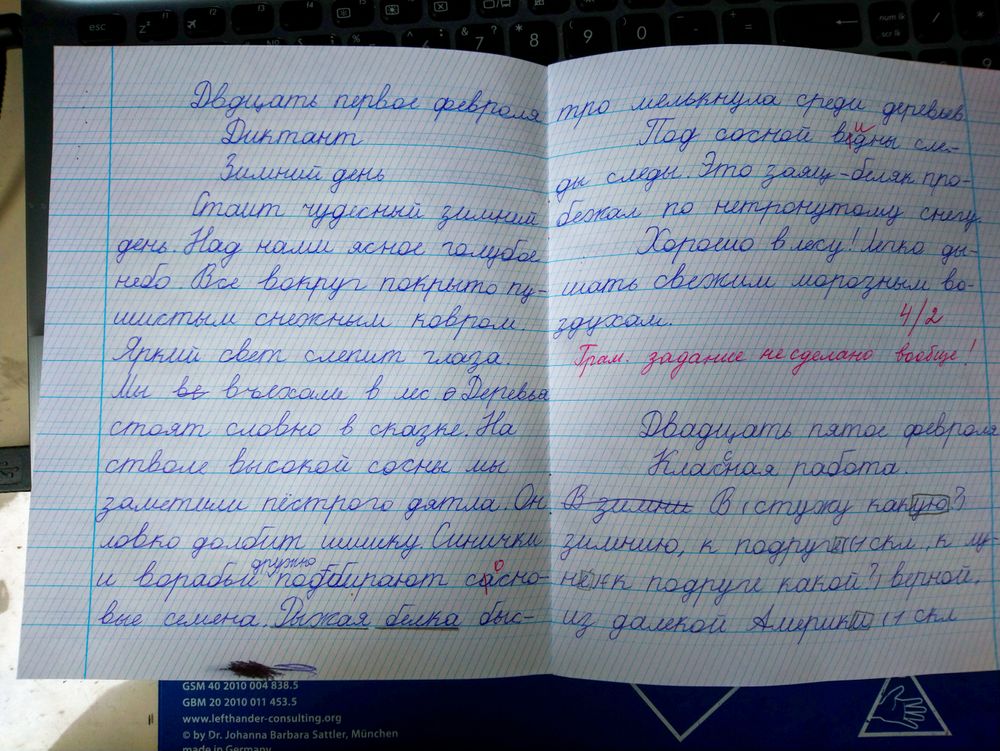 Двдцать первое февроля
Диктант
Зимний день
Стаит чудесный зимний
день. Над нами ясное голубое
небо. Все вокруг покрыто пу-
шистым снежным ковром.
Яркий свет слепит глаза.
Мы ве въехали в лес. Деревья
стоят словно в сказке. На
стволе высокой сосны мы
заметили пёстрого дятла. Он
ловко долбит шишку. Синички
дружно
и воробьи подбирают сосно-
вые семена. Рыжая белка быс-
тро мелькнула среди деревьев.
Под сосной видны сле-
ды следы. Это заяц-беляк про-
бежал по нетронутому снегу.
Хорошо в лесу! Легко ды-
шать свежим морозным во-
здухом.
4/2
Грам. задание не сделано вообще!
Двадцать пятое февроля
Класная работа.
В зимнию В стужу какую?
зимнию, к подруге 1 скл., к лу-
к подруге какой? верной,
из далекой Америки (1 скл
esc
f2
f3
f4
f5
f6
7
8
9
0
num lk
scr lk
GSM 40 2010 004 838.5
GBM 20 2010 011 453.5
www.lefthander-consulting.org
© by Dr. Johanna Barbara Sattler, München
made in Germany